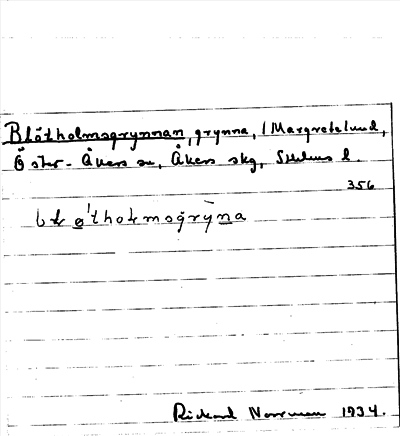 Blötholmsgrynnan, grynna, / Margretelund,
Öster-Åkers sn, Åkers skg, Sthlms l.
356
Rickard Norrman 1934.